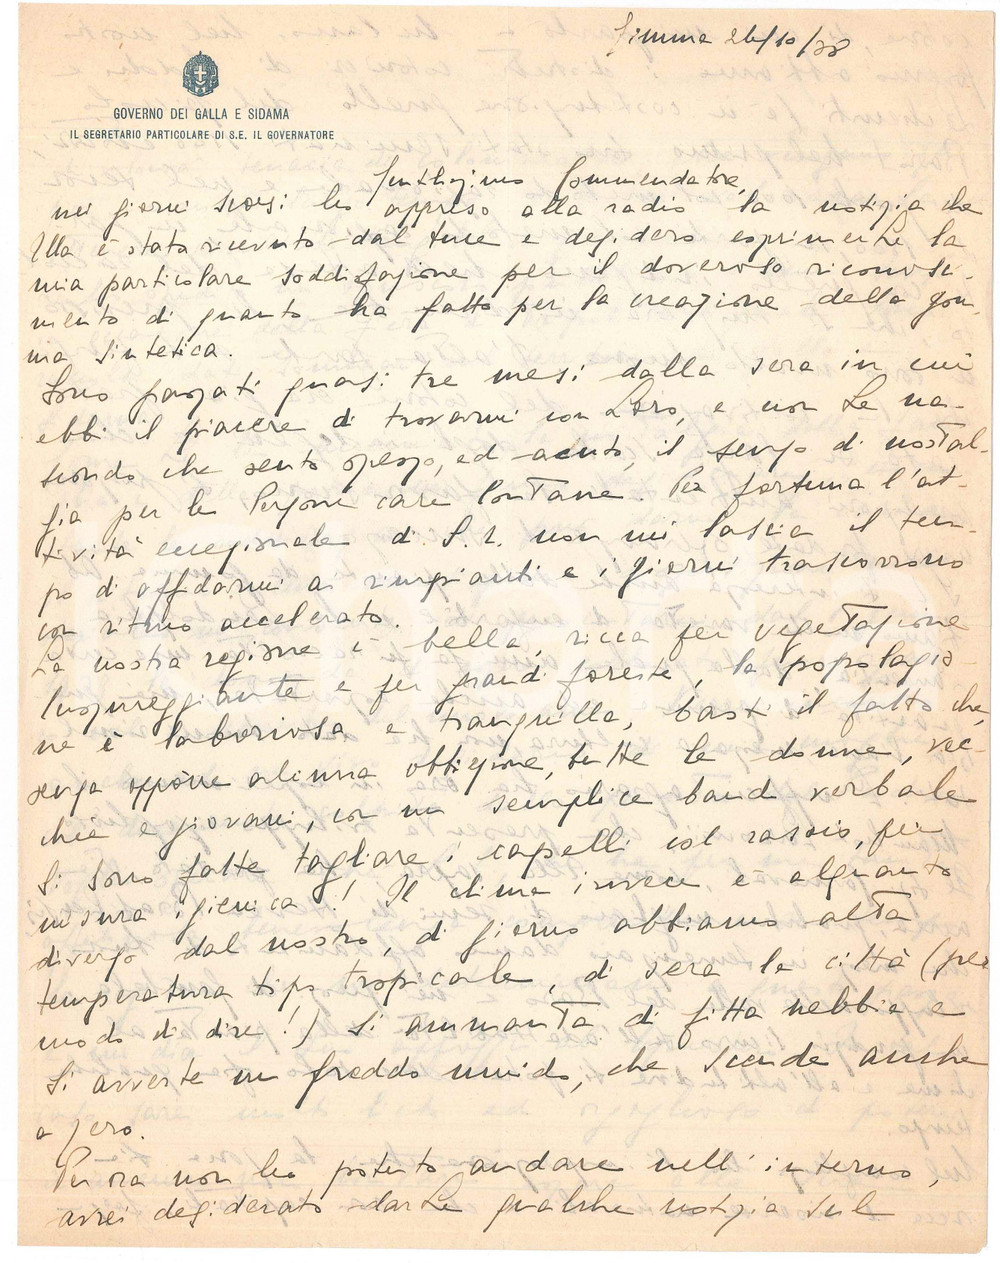 Gimma 24/10/38
GOVERNO DEI GALLA E SIDAMA
IL SEGRETARIO PARTICOLARE DI S.E. IL GOVERNATORE
Gentilissimo Commendatore,
nei giorni scorsi ho appreso alla radio la notizia che
Ella è stato ricevuto dal Duce e desidero esprimerLe la
mia particolare soddisfazione per il doveroso riconosci-
mento di quanto ha fatto per la creazione della gom-
ma sintetica.
Sono passati quasi tre mesi dalla sera in cui
ebbi il piacere di trovarmi con Loro, e non Le na-
scondo che sento spesso, ed acuto, il senso di nostal-
gia per le Persone care lontane. Per fortuna l'at-
tività eccezionale di S.E. non mi lascia il tem-
po di affidarmi ai rimpianti e i giorni trascorrono
con ritmo accelerato.
La nostra regione è bella, ricca per vegetazione
lussureggiante e per grandi foreste, la popolazio-
ne è laboriosa e tranquilla, basti il fatto che,
senza opporre alcuna obbiezione, tutte le donne, vec-
chie e giovani, con un semplice band verbale
si sono fatte tagliare i capelli col rasoio, per
misura igienica! Il clima invece è alquanto
diverso dal nostro, di giorno abbiamo alta
temperatura tipo tropicale, di sera la città (per
modo di dire!) si ammanta di fitta nebbia e
si avverte un freddo umido, che scende anche
a zero.
Per ora non ho potuto andare nell'interno,
avrei desiderato darLe qualche notizia sul